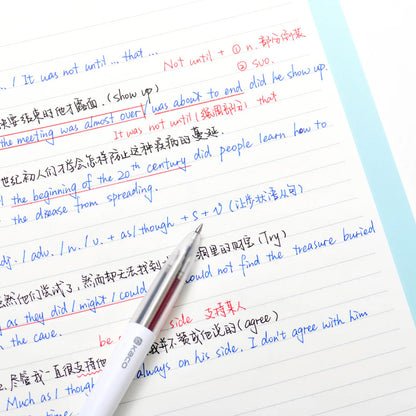 ... / It was not until ... that ...
Not until + ① n. 部分倒装
② 句.
结束时他才露面. (show up)
the meeting was almost over / was about to end did he show up.
It was not until (强调部分) that
世纪初人们才学会怎样防止这种疾病的蔓延.
the beginning of the 20th century did people learn how to
the disease from spreading.
adj. / adv. / n. / v. + as / though + S + V (让步状语从句)
他们尝试了, 然而却无法找到 洞里的财宝 (Try)
as they did / might / could could not find the treasure buried
the cave.
be side 支持某人
2. 尽管我一直很支持他 我并不赞成他说的 (agree)
Much as I though always on his side, I don't agree with him
time.
kaco